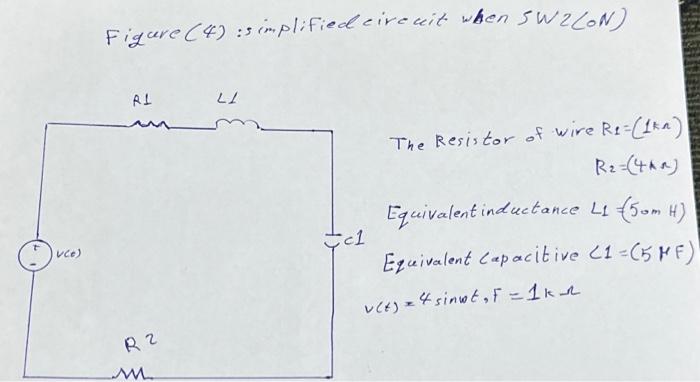 Figure (4) : simplified circuit when SW2 (ON)
R1 L1
The Resistor of wire R1=(1kΩ)
R2=(4kΩ)
Equivalent inductance L1=(50m H)
C1
Equivalent Capacitive C1=(5 µF)
+
-
V(t)
v(t) = 4 sinwt, F = 1kΩ
R2